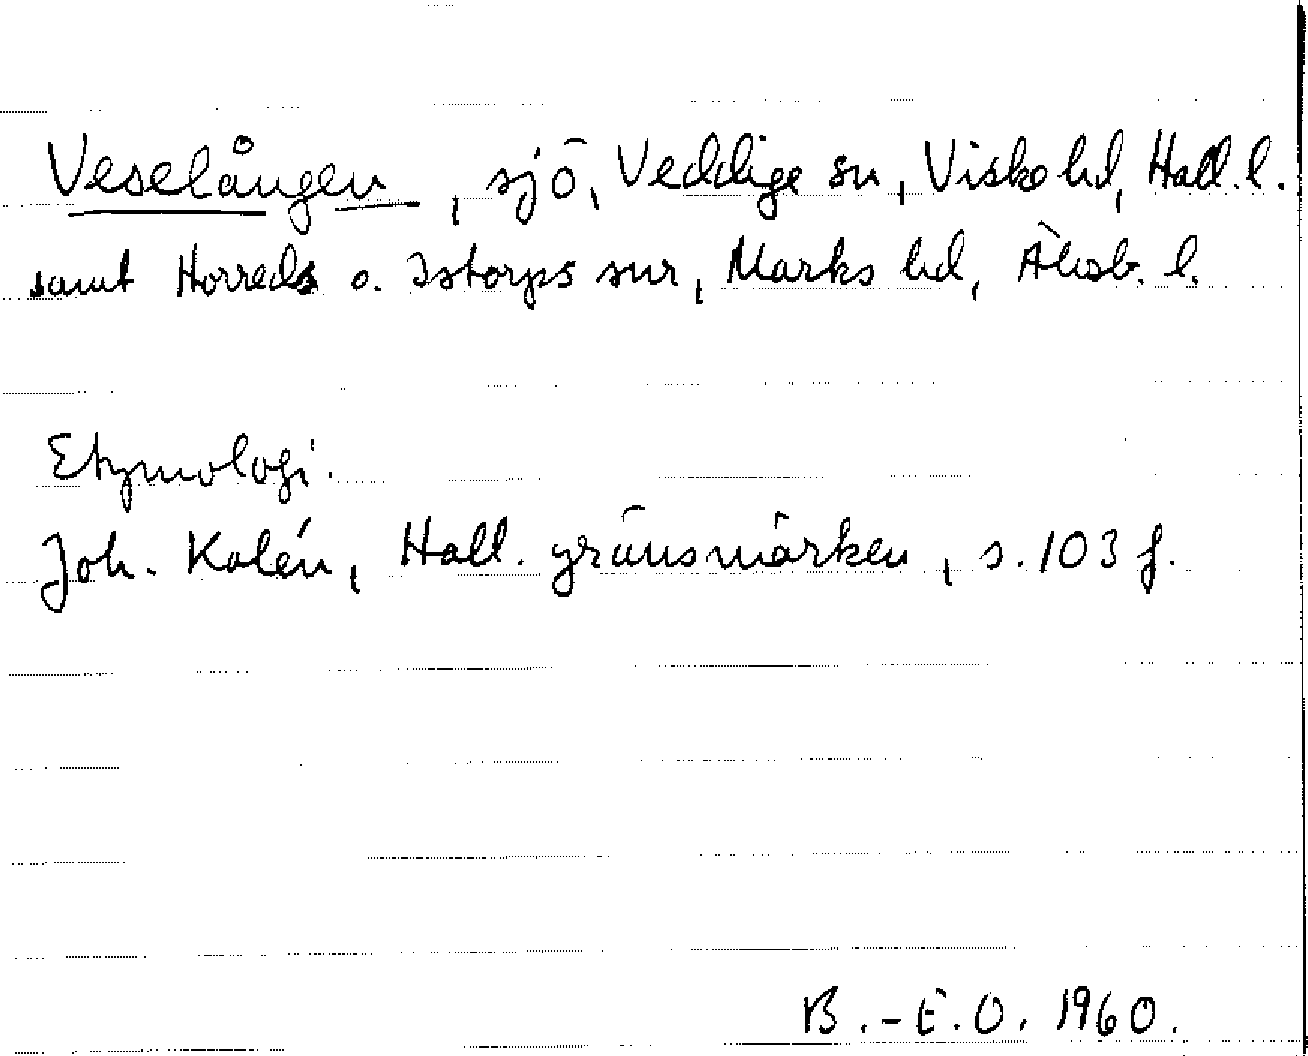 Veselången, sjö, Veddige sn, Viske hd, Hall. l.
samt Horreds o. Istorps snr, Marks hd, Älvsb. l.
Etymologi.
Joh. Kalén, Hall. gränsmärken, s. 103 f.
B.-E.O. 1960.